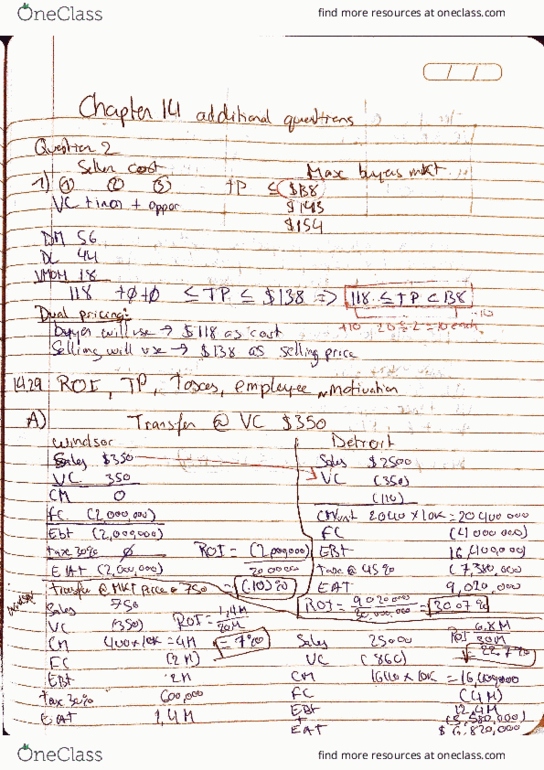 OneClass
find more resources at oneclass.com
Chapter 14 additional questions
Question 2
Seller cost
Max buyers mkt
1) ① ② ③ TP ≤ $138
VC + incr + oppor $145
$154
DM 56
DL 44
VMOH 18
118 +0+0 ≤ TP ≤ $138 => 118 ≤ TP ≤ 138
Dual pricing:
+10 20÷2=10 each -10
buyer will use → $118 as cost
Selling will use → $138 as selling price
14.29 ROI, TP, Taxes, employee motivation
A) Transfer @ VC $350
Windsor
Detroit
Sales $350
Sales $2500
VC 350
VC (350)
CM 0
(110)
CM/unit 2040 x 10K = 20 400 000
FC (2 000 000)
FC (4 000 000)
Ebt (2,000,000)
EBT 16,400,000
tax 30% 0
Tax @ 45% (7,380,000)
EIAT (2,000,000)
EAT 9,020,000
ROI = (2,000,000) / 20 000 000 = (.10)%
ROI = 9 020 000 / 30,000,000 = 30.07%
Transfer @ MKT price @ 750
Windsor
Sales 750
VC (350)
ROI = 1.4M / 20M = 7%
CM 400 x 10K = 4M
FC (2M)
EBT 2M
tax 30% 600,000
EAT 1,4M
Sales 25000
ROI 6.8M / 30M = 22.7%
VC (860)
CM 1640 x 10K = 16,400,000
FC (4M)
EBT 12.4M
T (5,580,000)
EAT $6,820,000
OneClass
find more resources at oneclass.com